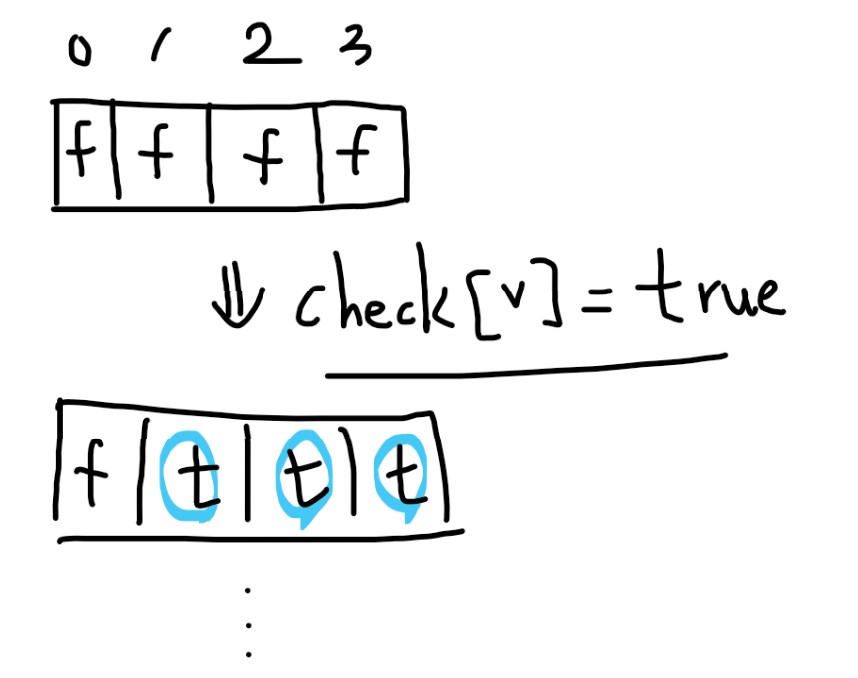 0 1 2 3
f f f f
⇓ check[v] = true
f t t t
⋮